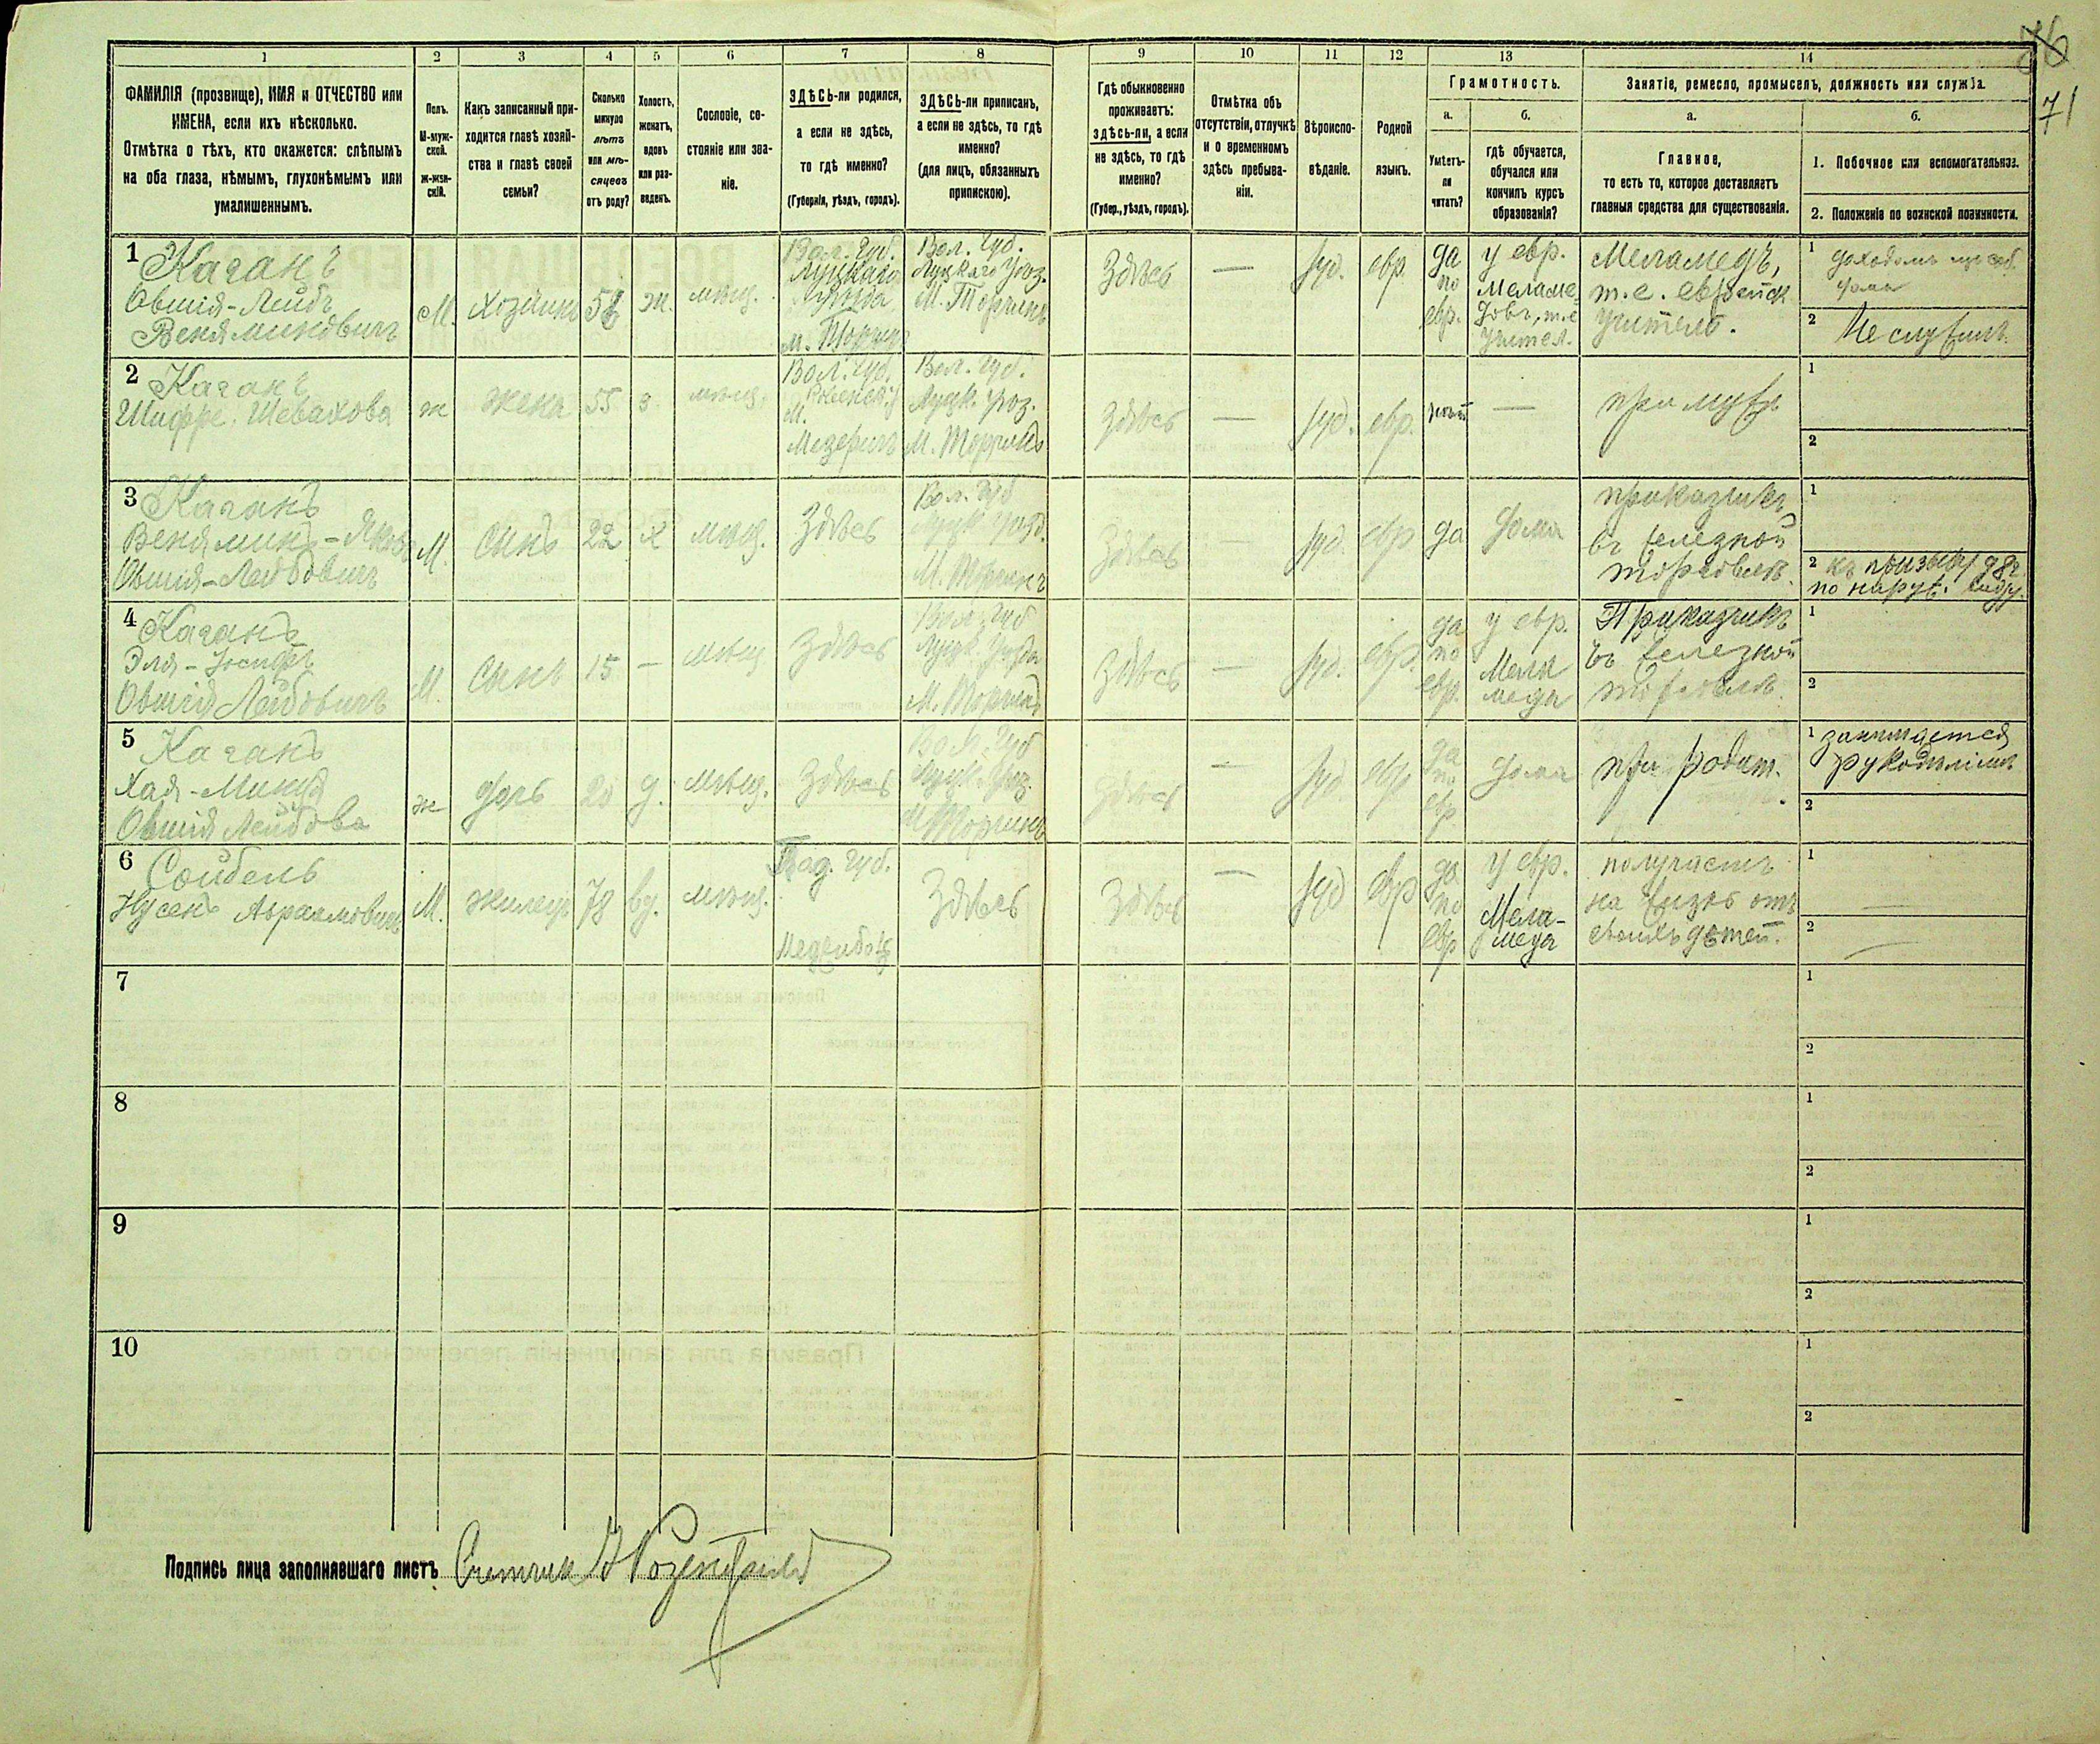 76
71
1
2
3
4
5
6
7
8
9
10
11
12
13
14
ФАМИЛІЯ (прозвище), ИМЯ и ОТЧЕСТВО или
ИМЕНА, если ихъ нѣсколько.
Отмѣтка о тѣхъ, кто окажется: слѣпымъ
на оба глаза, нѣмымъ, глухонѣмымъ или
умалишеннымъ.
Полъ.
М-муж-
ской.
Ж-жен-
скій.
Какъ записанный при-
ходится главѣ хозяй-
ства и главѣ своей
семьи?
Сколько
минуло
лѣтъ
или мѣ-
сяцевъ
отъ роду?
Холостъ,
женатъ,
вдовъ
или раз-
веденъ.
Сословіе, со-
стояніе или зва-
ніе.
ЗДѢСЬ-ли родился,
а если не здѣсь,
то гдѣ именно?
(Губернія, уѣздъ, городъ).
ЗДѢСЬ-ли приписанъ,
а если не здѣсь, то гдѣ
именно?
(для лицъ, обязанныхъ
припискою).
Гдѣ обыкновенно
проживаетъ:
здѣсь-ли, а если
не здѣсь, то гдѣ
именно?
(Губер., уѣздъ, городъ).
Отмѣтка объ
отсутствіи, отлучкѣ
и о временномъ
здѣсь пребыва-
ніи.
Вѣроиспо-
вѣданіе.
Родной
языкъ.
Грамотность.
а.
Умѣетъ-
ли
читать?
б.
гдѣ обучается,
обучался или
кончилъ курсъ
образованія?
Занятіе, ремесло, промыселъ, должность или служба.
а.
Главное,
то есть то, которое доставляетъ
главныя средства для существованія.
б.
1. Побочное или вспомогательное.
2. Положеніе по воинской повинности.
1 Каганъ
Овшія-Лейбъ
Веняминовичъ
М.
Хозяинъ
ж.
мѣщ.
Вол. Губ.
Луцкаго
Уѣзда
м. Торчинъ
Вол. Губ.
Луцкаго Уѣз.
М. Торчинъ
Здѣсь
—
Іуд.
евр.
да
по
евр.
у евр.
меламе
довъ, т.е
учител.
Меламедъ,
т.е. еврейск
учитель.
1
2 Не служилъ
2 Каганъ
Шифре Шевахова
ж
жена
55
з
мѣщ.
Вол. Губ.
М.
Мезеричъ
Вол. Губ.
Луцк. Уѣз.
М. Торчинъ
Здѣсь
—
Іуд.
евр.
нѣтъ
—
при мужѣ
1
2
3 Каганъ
Венямин-Янкель
Овшія-Лейбовичъ
М.
Сынъ
22
х
мѣщ.
Здѣсь
Вол. Губ
Луцк. Уѣзд.
М. Торчинъ
Здѣсь
—
Іуд.
евр
да
дома
приказчикъ
въ желѣзной
торговлѣ.
1
2 къ призыву 98 г.
по наруж. виду.
4 Каганъ
Эля-Іосифъ
Овшія Лейбовичъ
М.
Сынъ
15
—
мѣщ
Здѣсь
Вол. Губ
Луцк. Уѣзда
М. Торчинъ
Здѣсь
—
Іуд.
евр.
да
по
евр.
у евр.
Мела
меда
Приказчикъ
въ желѣзной
торговлѣ.
1
2
5 Каганъ
Хая-Минця
Овшія Лейбова
ж
дочь
20
д.
мѣщ.
Здѣсь
Вол. Губ
Луцк. Уѣз.
М Торчинъ
Здѣсь
—
Іуд
евр
да
по
евр.
дома
при родит.
1 занимается
рукодѣліемъ
2
6 Сойбель
Нусенъ Абрамовичъ
М.
жилецъ
78
вд.
мѣщ.
Под. Губ.
Меджибожъ
Здѣсь
Здѣсь
—
Іуд
евр
да
по
евр
у евр.
Мела-
меда
получаетъ
на жизнь отъ
своихъ дѣтей.
1 —
2 —
7
1
2
8
1
2
9
1
2
10
1
2
Подпись лица заполнявшаго листъ Счетчик